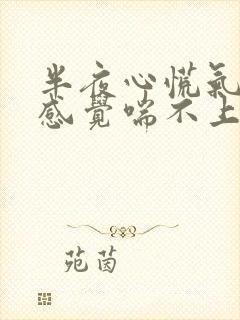 半夜心慌氣
感覺喘不上
苑茵